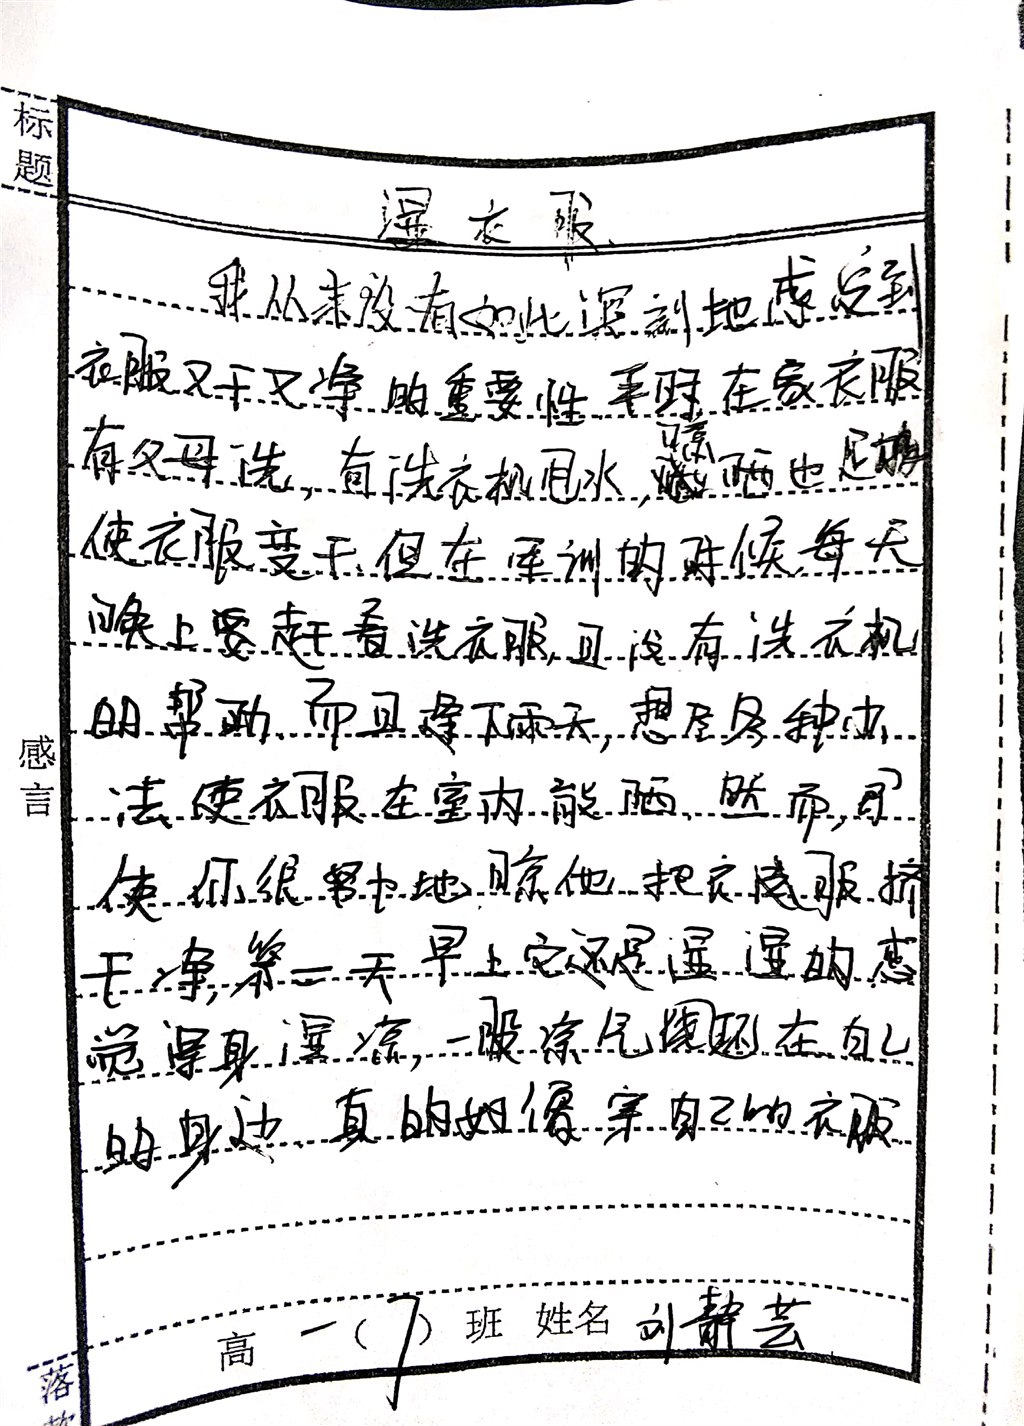 标题
湿衣服
我从来没有如此深刻地感受到
衣服又干又净的重要性.平时在家衣服
有父母洗,有洗衣机甩水,晾晒也足够
使衣服变干.但在军训的时候,每天
晚上要赶着洗衣服,且没有洗衣机
的帮助.而且逢下雨天,想尽各种办
法使衣服在室内能晒.然而,即
使你很努力地晾他把衣服挤
干净,第二天早上它还是湿湿的感
觉浑身湿凉,一股凉风围在自己
的身边.真的好像穿自己的衣服
感言
高一(7)班 姓名 刘静芸
落款